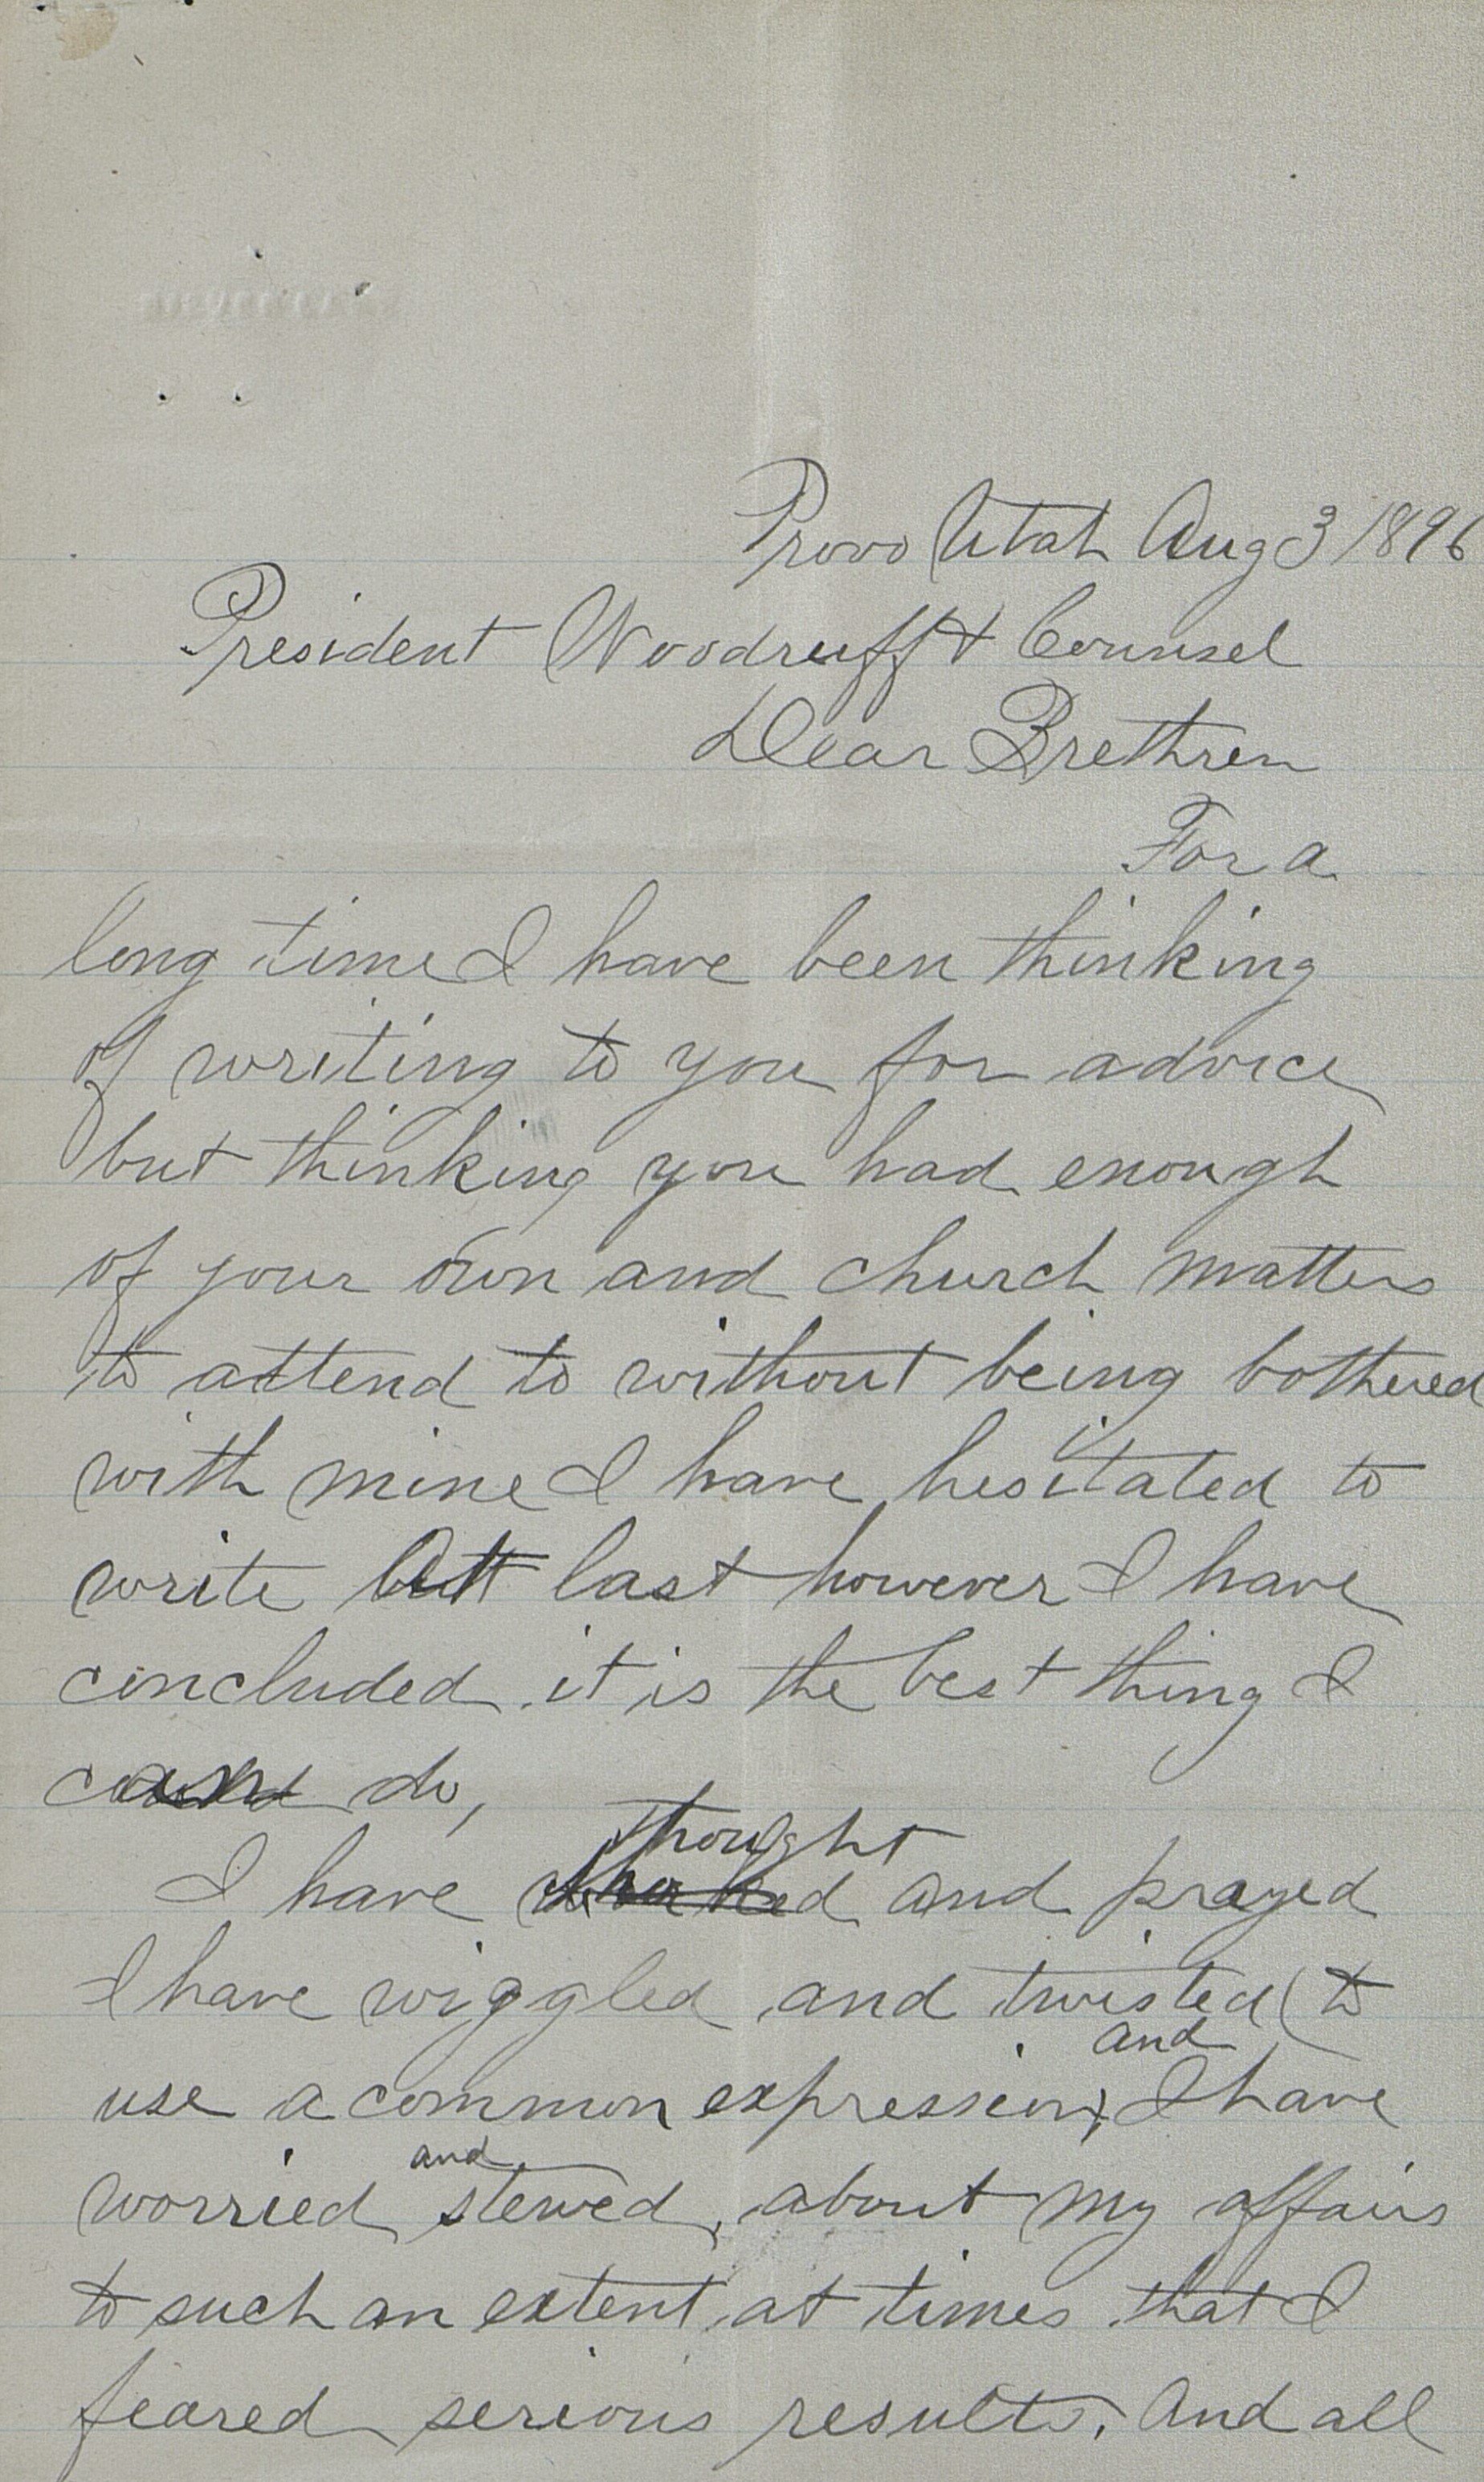 Provo Utah Aug 3 1896
President Woodruff & Counsel
Dear Brethren
For a
long time I have been thinking
of writing to you for advice
but thinking you had enough
of your own and church matters
to attend to without being bothered
with mine I have hesitated to
write Att last however I have
concluded it is the best thing I
can do,
thought
I have and prayed
I have wiggled and twisted (to
and
use a common expression) I have
and
worried stewed, about my affairs
to such an extent at times that I
feared serious results. And all